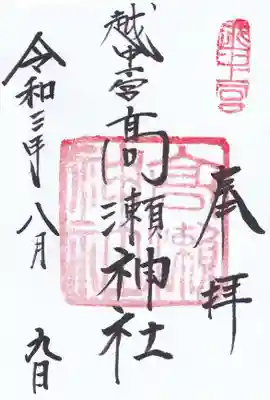 越中一宮
奉拝
越中一宮髙瀬神社
高瀬神社
令和三年八月九日